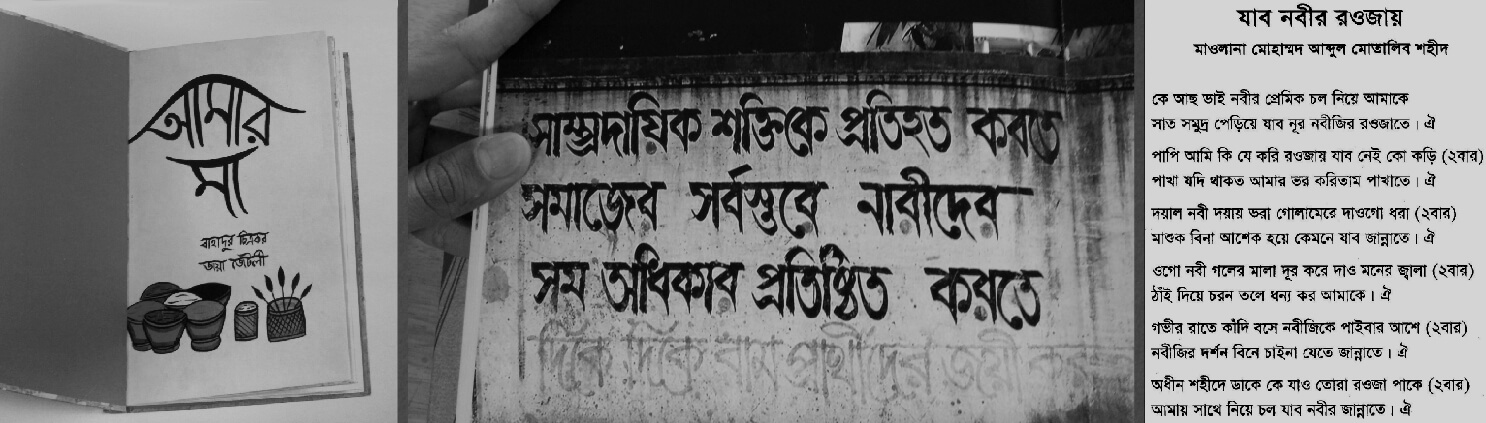 আমার
মা
বাহাদুর চিত্রকর
সাম্প্রদায়িক শক্তিকে প্রতিহত করতে
সমাজের সর্বস্তরে নারীদের
সম অধিকার প্রতিষ্ঠিত করতে
দিকে দিকে বাম প্রার্থীদের জয়ী করুন
যাব নবীর রওজায়
মাওলানা মোহাম্মদ আব্দুল মোতালিব শহীদ
কে আছ ভাই নবীর প্রেমিক চল নিয়ে আমাকে
সাত সমুদ্র পেড়িয়ে যাব নূর নবীজির রওজাতে। ঐ
পাপি আমি কি যে করি রওজায় যাব নেই কো কড়ি (২বার)
পাখা যদি থাকত আমার ভর করিতাম পাখাতে। ঐ
দয়াল নবী দয়ায় ভরা গোলামেরে দাওগো ধরা (২বার)
মাশুক বিনা আশেক হয়ে কেমনে যাব জান্নাতে। ঐ
ওগো নবী গলের মালা দূর করে দাও মনের জ্বালা (২বার)
ঠাঁই দিয়ে চরন তলে ধন্য কর আমাকে। ঐ
গভীর রাতে কাঁদি বসে নবীজিকে পাইবার আশে (২বার)
নবীজির দর্শন বিনে চাইনা যেতে জান্নাতে। ঐ
অধীন শহীদে ডাকে কে যাও তোরা রওজা পাকে (২বার)
আমায় সাথে নিয়ে চল যাব নবীর জান্নাতে। ঐ